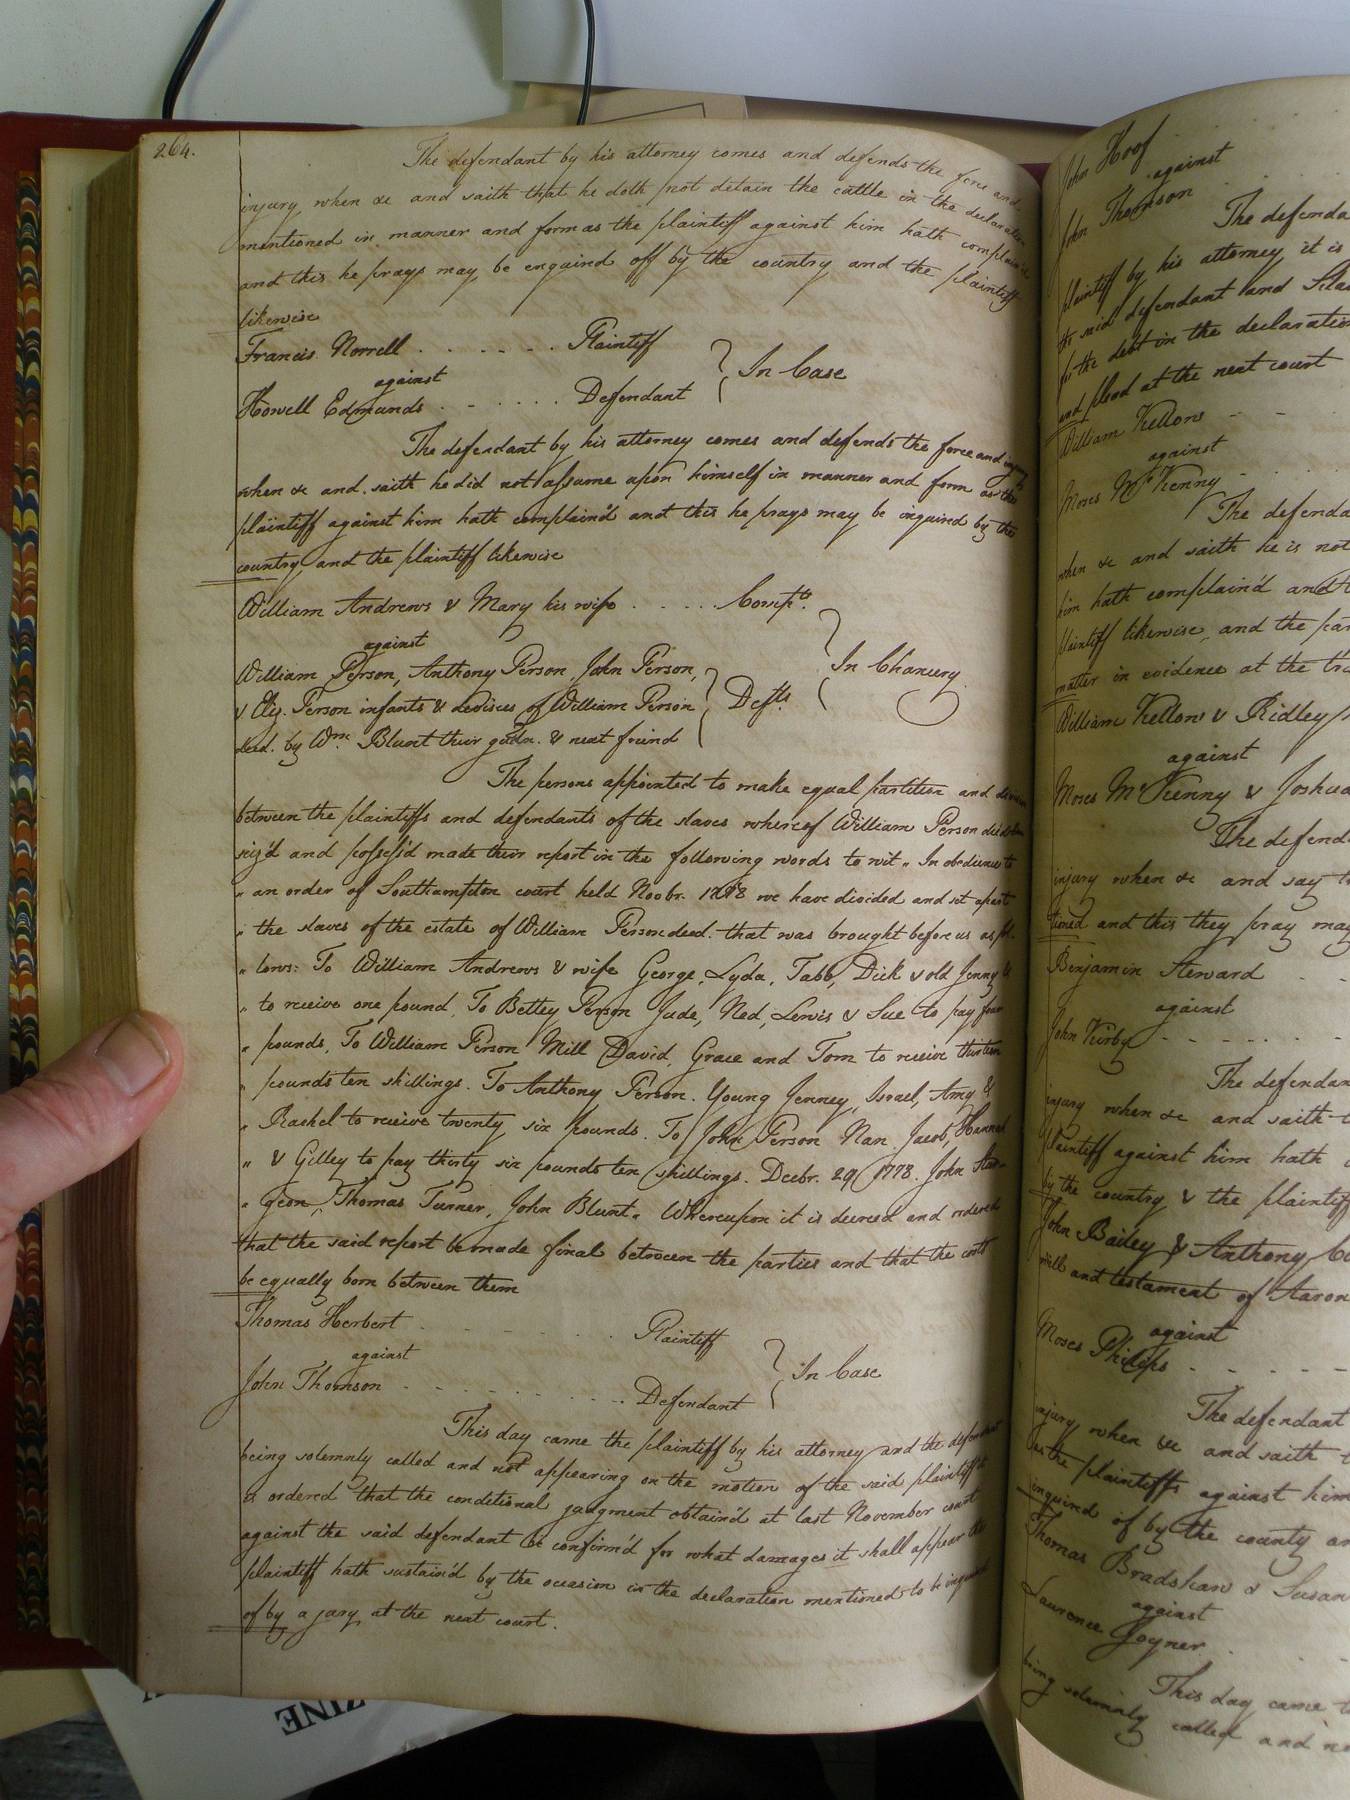 264.
The defendant by his attorney comes and defends the force and
injury when &c and saith that he doth not detain the cattle in the declaration
mentioned in manner and form as the plaintiff against him hath complain'd
and this he prays may be enquired off by the country and the plaintiff
likewise
Francis Norrell . . . . . . Plaintiff
against
Howell Edmunds . . . . . . Defendant
In Case
The defendant by his attorney comes and defends the force and injury
when &c and saith he did not assume upon himself in manner and form as the
plaintiff against him hath complain'd and this he prays may be inquired by the
country and the plaintiff likewise
William Andrews & Mary his wife . . . . Compts.
against
William Person, Anthony Person, John Person,
& Eliz. Person infants & devisees of William Person
decd. by Wm. Blunt their gudn. & next friend
Defts.
In Chancery
The persons appointed to make equal partition and division
between the plaintiffs and defendants of the slaves whereof William Person died
seiz'd and possess'd made their report in the following words to wit " In obedience to
" an order of Southampton court held Novbr. 1778 we have divided and set apart
" the slaves of the estate of William Person decd. that was brought before us as fol-
" lows: To William Andrews & wife George, Lyda, Tabb, Dick & old Jenny &
" to receive one pound, To Bettey Person Jude, Ned, Lewis & Sue to pay four
" pounds, To William Person Mill David, Grace and Tom to receive thirteen
" pounds ten shillings. To Anthony Person. Young Jenney, Israel, Amy &
" Rachel to receive twenty six pounds. To John Person Nan, Jacob, Hannah
" & Gilley to pay thirty six pounds ten shillings. Decbr. 29 1778. John Stur-
" geon, Thomas Turner, John Blunt " Whereupon it is decreed and ordered
that the said report be made final between the parties and that the costs
be equally born between them
Thomas Herbert . . . . . . Plaintiff
against
John Thomson . . . . . . Defendant
In Case
This day came the plaintiff by his attorney and the defendant
being solemnly called and not appearing on the motion of the said plaintiff it
is ordered that the conditional judgment obtain'd at last November court
against the said defendant be confirm'd for what damages it shall appear the
plaintiff hath sustain'd by the occasion in the declaration mentioned to be inquired
of by a jury at the next court.
John Hoof
against
John Thomson
The defenda
plaintiff by his attorney it is
the said defendant and
for the debt in the declaration
and plead at the next court
William Vellons - -
against
Moses McKenny - .
The defenda
when &c and saith he is not
him hath complain'd and
plaintiff likewise, and the par
matter in evidence at the
William Vellons & Ridley
against
Moses McKenny & Joshua
The defend
injury when &c and say t
tioned and this they pray may
Benjamin Steward .
against
John Kirby - - - - - -
The defendan
injury when &c and saith t
plaintiff against him hath
by the country & the plaintiff
John Bailey & Anthony
will and testament of Aaron
against
Moses Philips . - - - -
The defendant
injury when &c and saith
as the plaintiffs against him
inquired of by the county an
Thomas Bradshaw & Susan
against
Laurence Joyner .
This day came t
being solemnly called and no
ZINE